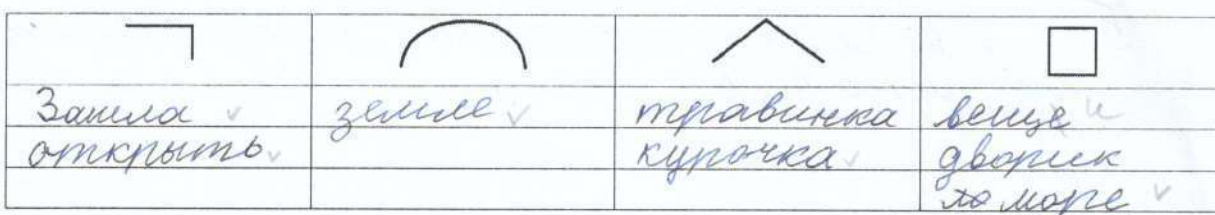 Зашла земле травинка веще и
открыть курочка дворик
хо море